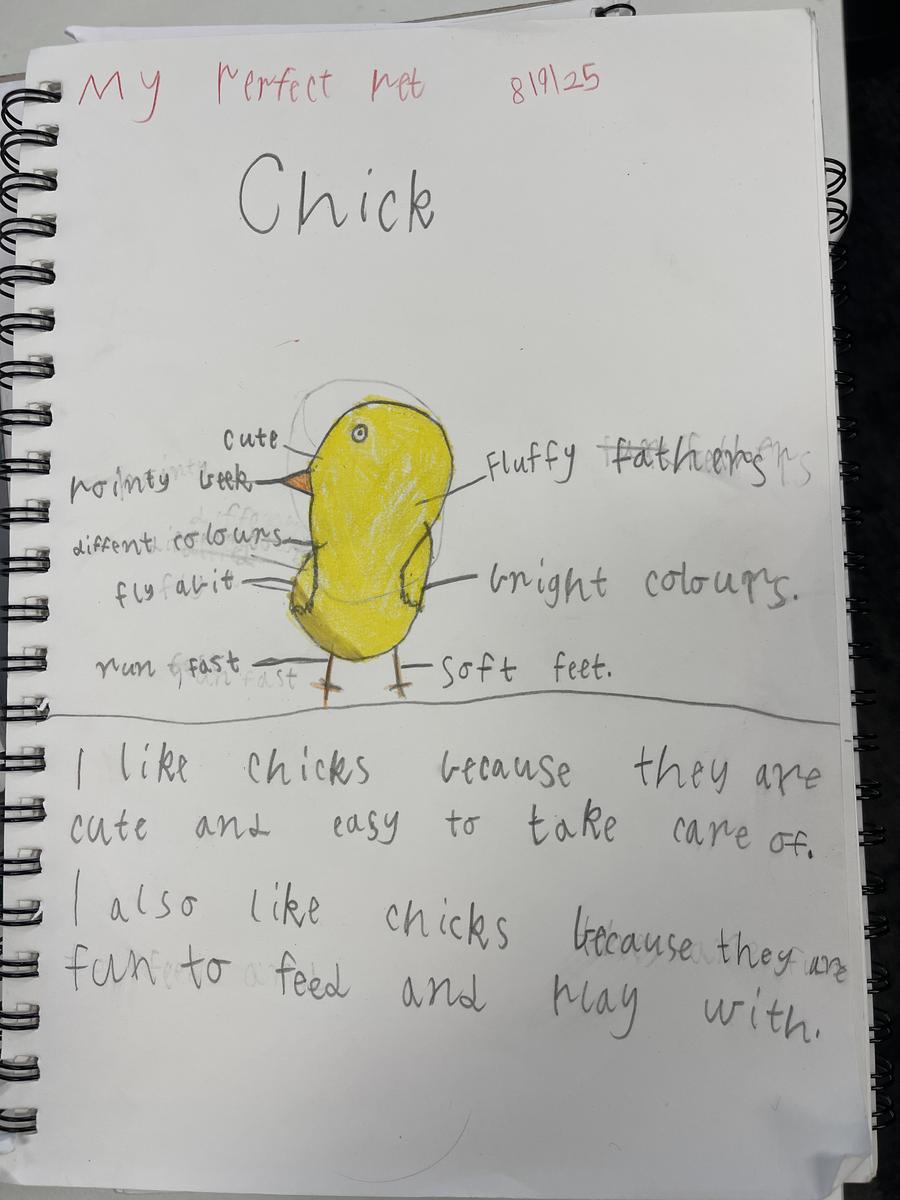 My Perfect Pet 8/9/25
Chick
cute
pointy beek
diffent colours
fly abit
run fast
Fluffy fathers
bright colours.
soft feet.
I like chicks because they are
cute and easy to take care of.
I also like chicks because they are
fun to feed and play with.